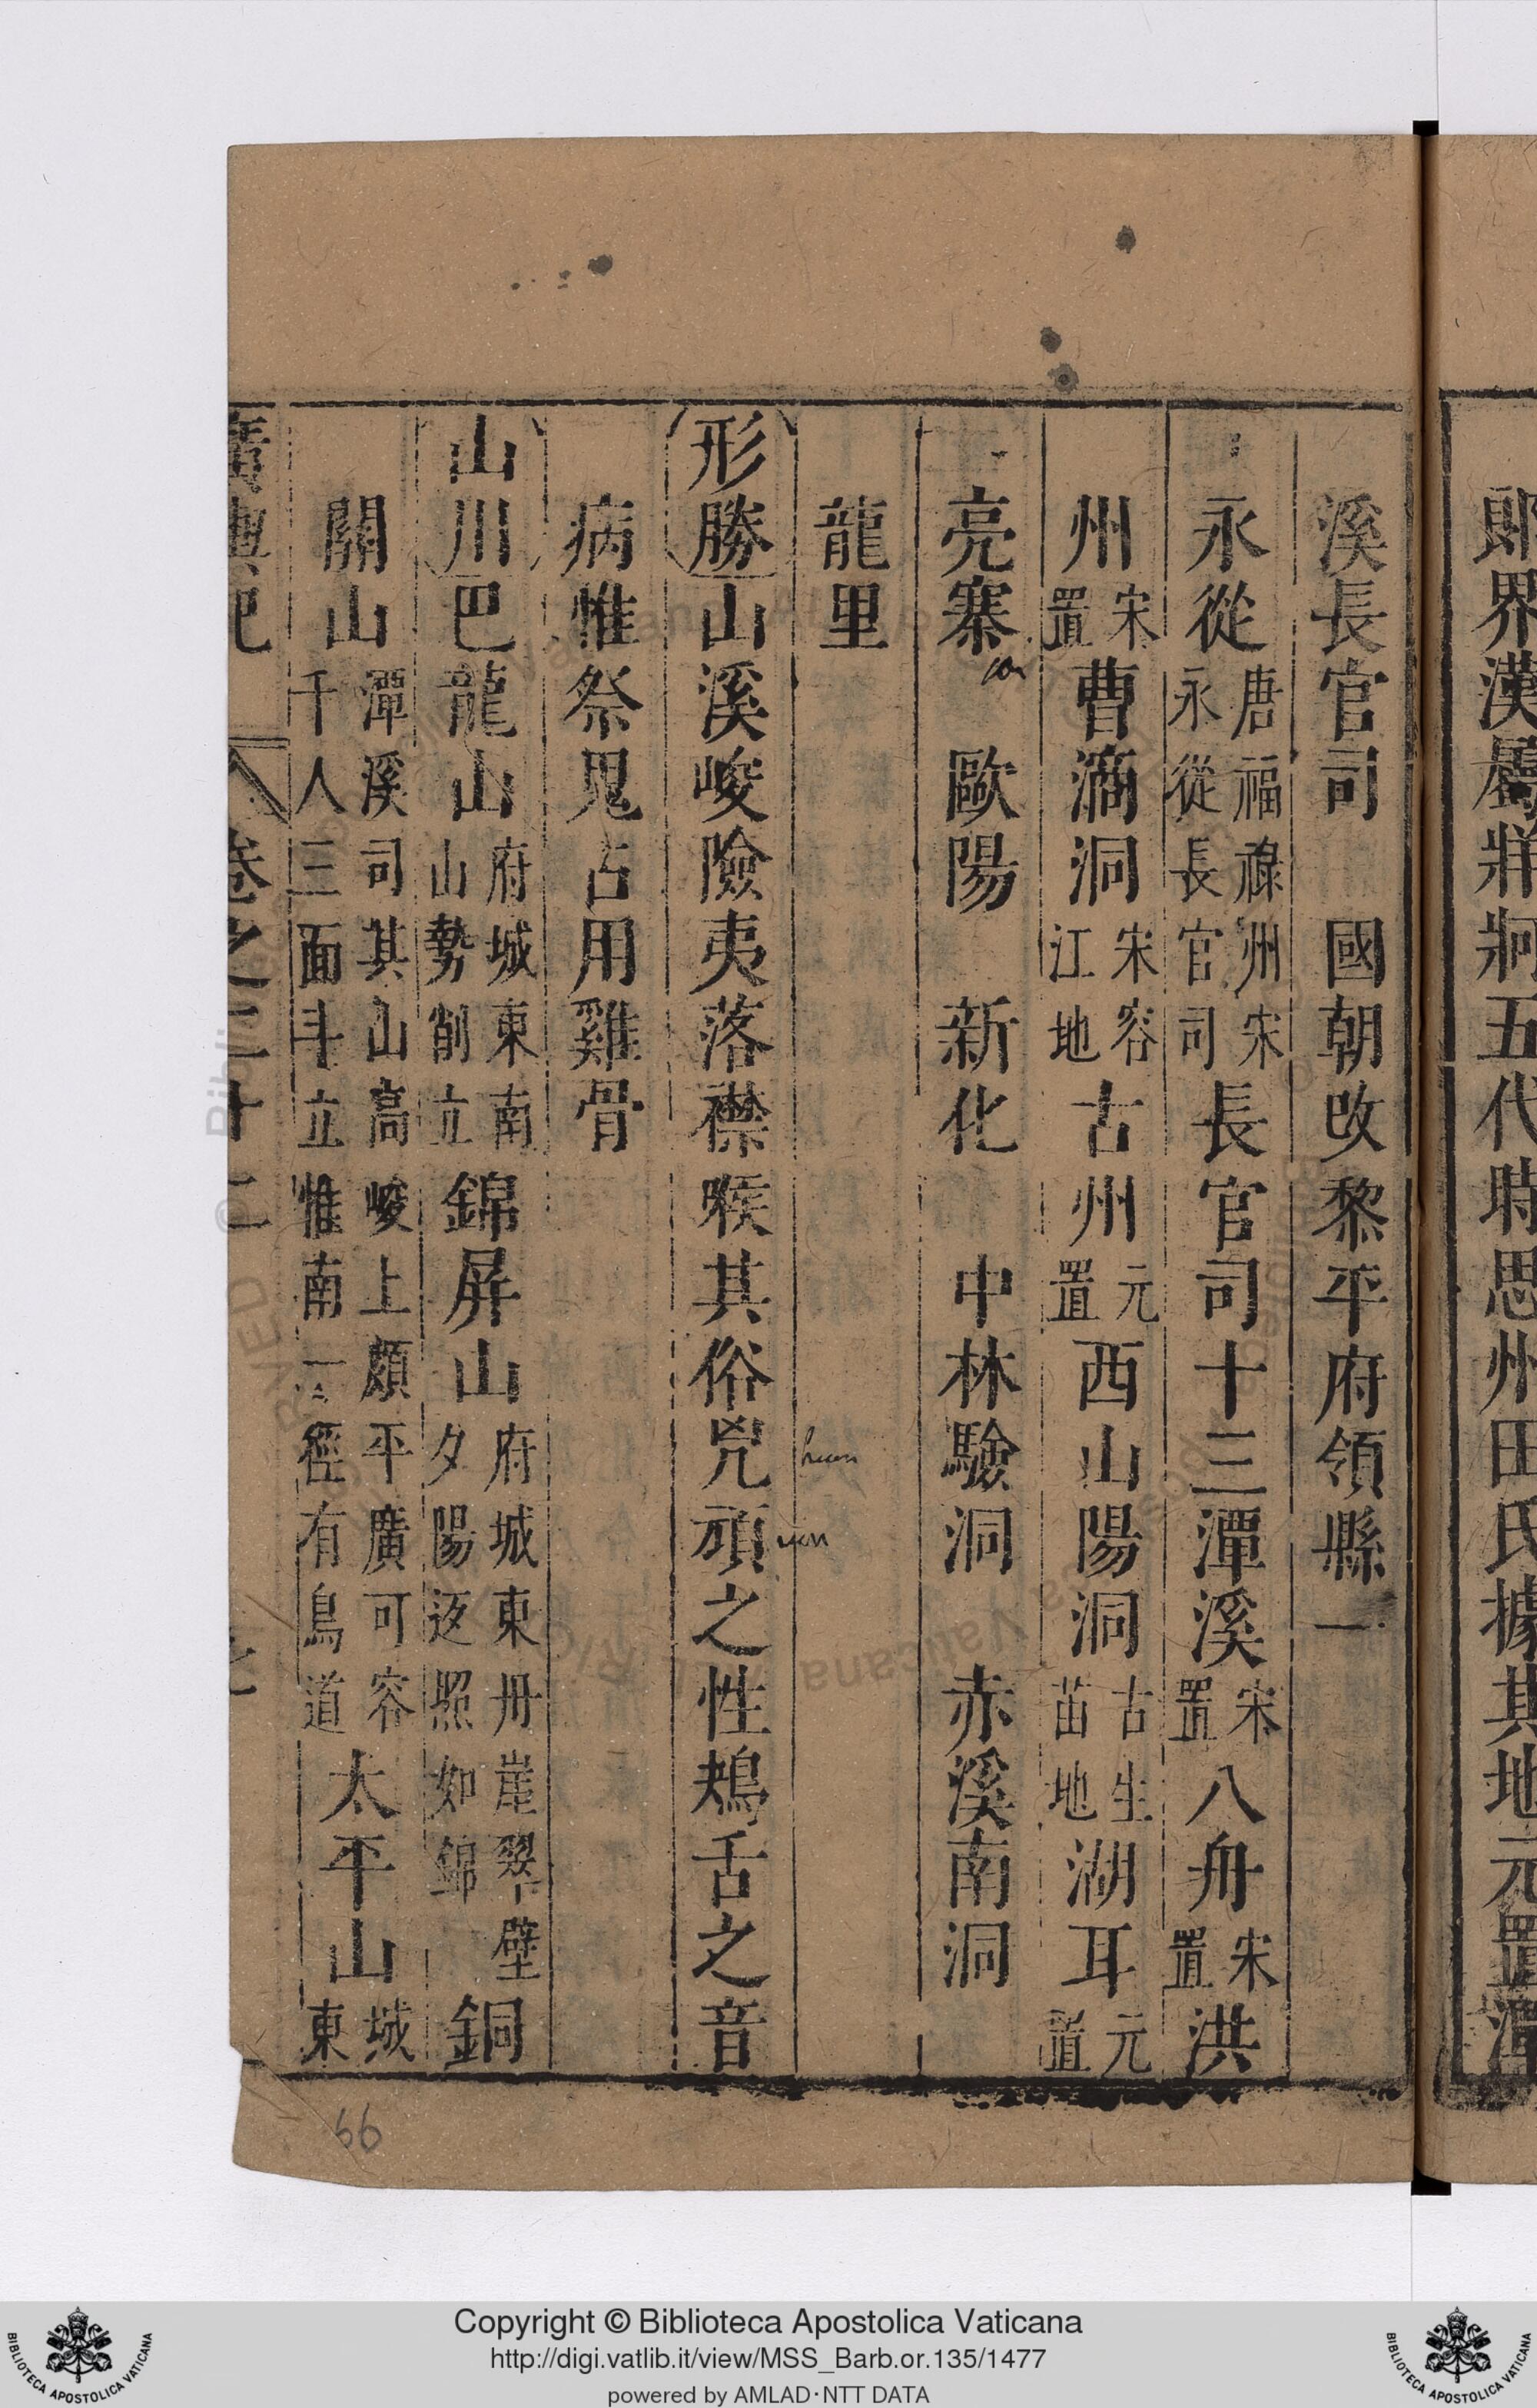 郎界漢屬牂牁五代時思州田氏據其地元置潭
溪長官司 國朝改黎平府領縣一
永從唐福祿州宋永從長官司長官司十三潭溪宋置八舟宋置洪
州宋置曹滴洞宋容江地古州元置西山陽洞古生苗地湖耳元置
亮寨 歐陽 新化 中林驗洞 赤溪南洞
龍里
形勝山溪峻險夷落襟喉其俗兇頑之性鴂舌之音
病惟祭鬼占用雞骨
山川巴龍山府城東南山勢削立錦屏山府城東丹崖翠壁夕陽返照如錦銅
關山潭溪司其山高峻上頗平廣可容千人三面斗立惟南一徑有鳥道太平山城東
廣輿記 卷之二十二
huen
uon
66
Copyright © Biblioteca Apostolica Vaticana
http://digi.vatlib.it/view/MSS_Barb.or.135/1477
powered by AMLAD·NTT DATA
BIBLIOTECA APOSTOLICA VATICANA
BIBLIOTECA APOSTOLICA VATICANA